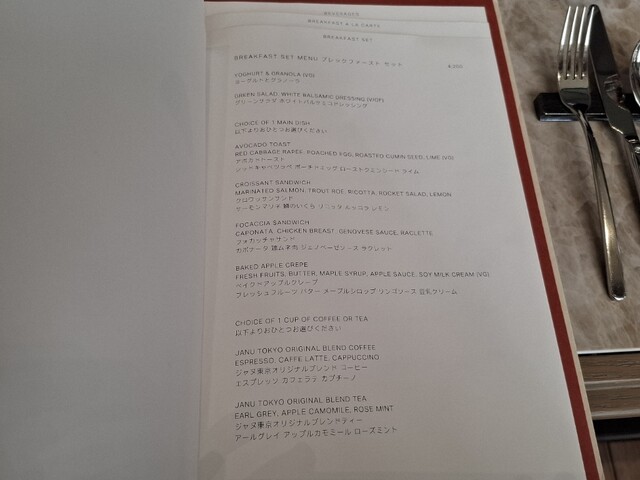 BEVERAGES
BREAKFAST A LA CARTE
BREAKFAST SET
BREAKFAST SET MENU ブレックファースト セット
YOGHURT & GRANOLA (VG)
ヨーグルトとグラノーラ
GREEN SALAD, WHITE BALSAMIC DRESSING (V/GF)
グリーンサラダ ホワイトバルサミコドレッシング
CHOICE OF 1 MAIN DISH
以下よりおひとつお選びください
AVOCADO TOAST
RED CABBAGE RAPEE, POACHED EGG, ROASTED CUMIN SEED, LIME (VG)
アボカドトースト
レッドキャベツラペ ポーチドエッグ ローストクミンシード ライム
CROISSANT SANDWICH
MARINATED SALMON, TROUT ROE, RICOTTA, ROCKET SALAD, LEMON
クロワッサンサンド
サーモンマリネ 鱒のいくら リコッタ ルッコラ レモン
FOCACCIA SANDWICH
CAPONATA, CHICKEN BREAST, GENOVESE SAUCE, RACLETTE
フォカッチャサンド
カポナータ 鶏ムネ肉 ジェノベーゼソース ラクレット
BAKED APPLE CREPE
FRESH FRUITS, BUTTER, MAPLE SYRUP, APPLE SAUCE, SOY MILK CREAM (VG)
ベイクドアップルクレープ
フレッシュフルーツ バター メープルシロップ リンゴソース 豆乳クリーム
CHOICE OF 1 CUP OF COFFEE OR TEA
以下よりおひとつお選びください
JANU TOKYO ORIGINAL BLEND COFFEE
ESPRESSO, CAFFE LATTE, CAPPUCCINO
ジャヌ東京オリジナルブレンド コーヒー
エスプレッソ カフェラテ カプチーノ
JANU TOKYO ORIGINAL BLEND TEA
EARL GREY, APPLE CAMOMILE, ROSE MINT
ジャヌ東京オリジナルブレンドティー
アールグレイ アップルカモミール ローズミント